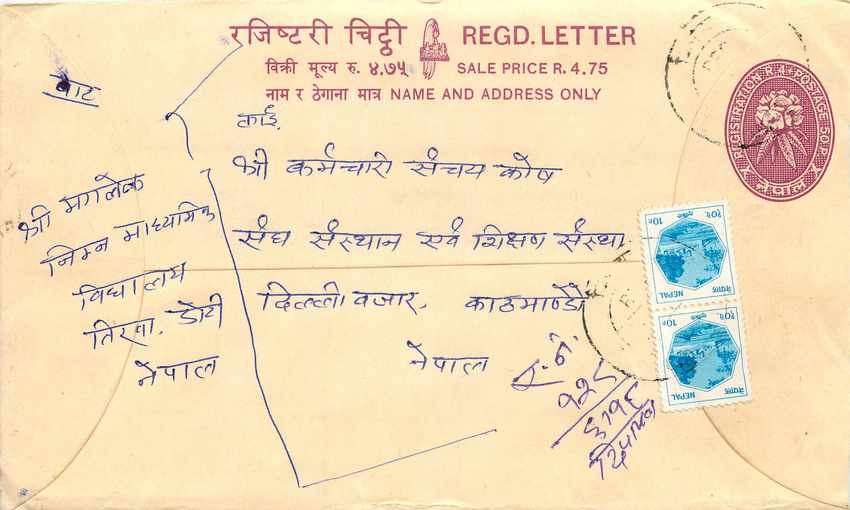 रजिष्टरी चिट्ठी REGD. LETTER
विक्री मूल्य रु. ४.७५ SALE PRICE R. 4.75
नाम र ठेगाना मात्र NAME AND ADDRESS ONLY
REGISTRATION R. 1. POSTAGE 50P.
नेपाल
बाट
श्री
निम्न माध्यमिक
विद्यालय
डोटी
नेपाल
श्री कर्मचारी संचय कोष
संघ संस्थान एवं शिक्षण संस्था
दिल्लीवजार, काठमाण्डौ
नेपाल
नेपाल NEPAL
१०पै. 10P
नेपाल NEPAL
१०पै. 10P